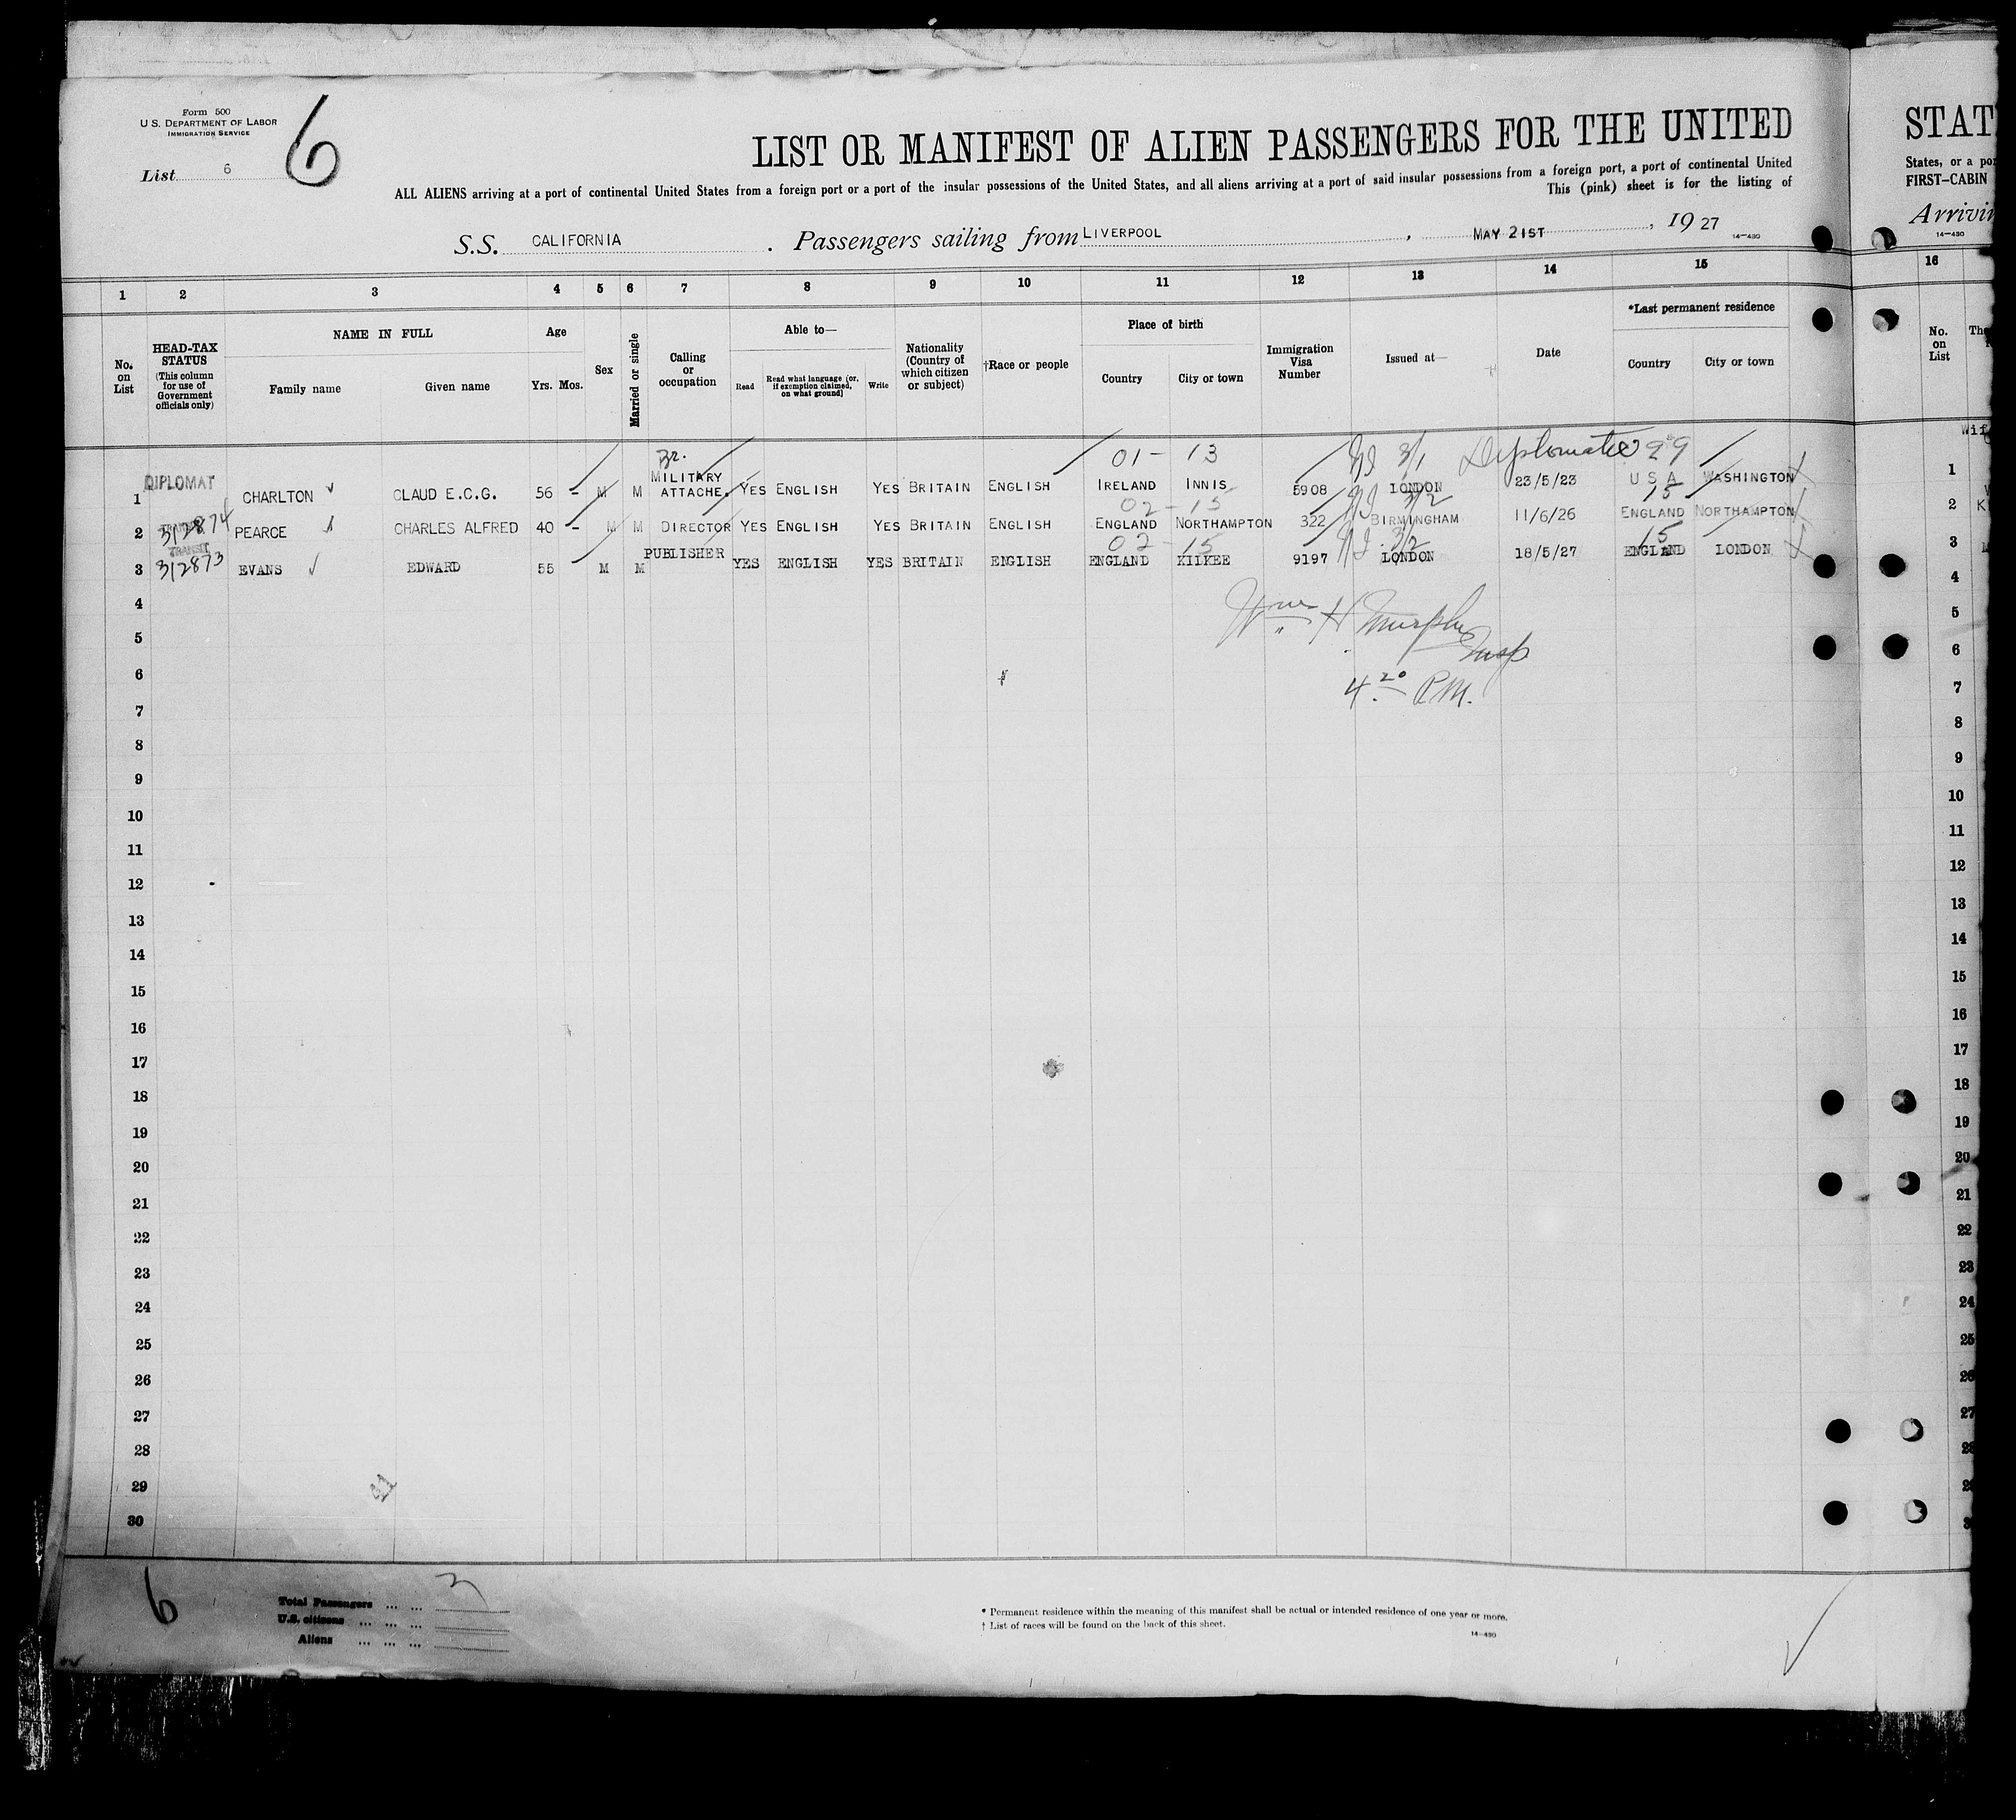 Form 500
U.S. DEPARTMENT OF LABOR
IMMIGRATION SERVICE
List 6
6
LIST OR MANIFEST OF ALIEN PASSENGERS FOR THE UNITED
ALL ALIENS arriving at a port of continental United States from a foreign port or a port of the insular possessions of the United States, and all aliens arriving at a port of said insular possessions from a foreign port, a port of continental United
This (pink) sheet is for the listing of
S.S. CALIFORNIA . Passengers sailing from LIVERPOOL , MAY 21ST , 19 27
14-430
STAT
States, or a por
FIRST-CABIN
Arrivin
14-430
1 2 3 4 5 6 7 8 9 10 11 12 13 14 15 16
No. on List
HEAD-TAX STATUS (This column for use of Government officials only)
NAME IN FULL
Family name Given name
Age
Yrs. Mos.
Sex
Married or single
Calling or occupation
Able to—
Read Read what language (or, if exemption claimed, on what ground) Write
Nationality (Country of which citizen or subject)
†Race or people
Place of birth
Country City or town
Immigration Visa Number
Issued at—
Date
*Last permanent residence
Country City or town
No. on List
Br. 01- 13 3/1 Diplomatic 99
1 DIPLOMAT CHARLTON CLAUD E.C.G. 56 - M M MILITARY ATTACHE. YES ENGLISH YES BRITAIN ENGLISH IRELAND INNIS 5908 LONDON 23/5/23 U S A WASHINGTON 1
02-15 3/2 15
2 312874 PEARCE CHARLES ALFRED 40 - M M DIRECTOR YES ENGLISH YES BRITAIN ENGLISH ENGLAND NORTHAMPTON 322 BIRMINGHAM 11/6/26 ENGLAND NORTHAMPTON 2
02-15 3/2 15
3 TRANSIT 312873 EVANS EDWARD 55 M M PUBLISHER YES ENGLISH YES BRITAIN ENGLISH ENGLAND KILKEE 9197 LONDON 18/5/27 ENGLAND LONDON 3
4 4
Wm H Murphy
5 5
Insp
6 6
4 20 P.M.
7 7
8 8
9 9
10 10
11 11
12 12
13 13
14 14
15 15
16 16
17 17
18 18
19 19
20 20
21 21
22 22
23 23
24 24
25 25
26 26
27 27
28 28
29
30
6
Total Passengers ... ... 3
U.S. citizens ... ... ...
Aliens ... ... ...
* Permanent residence within the meaning of this manifest shall be actual or intended residence of one year or more.
† List of races will be found on the back of this sheet.
14-430